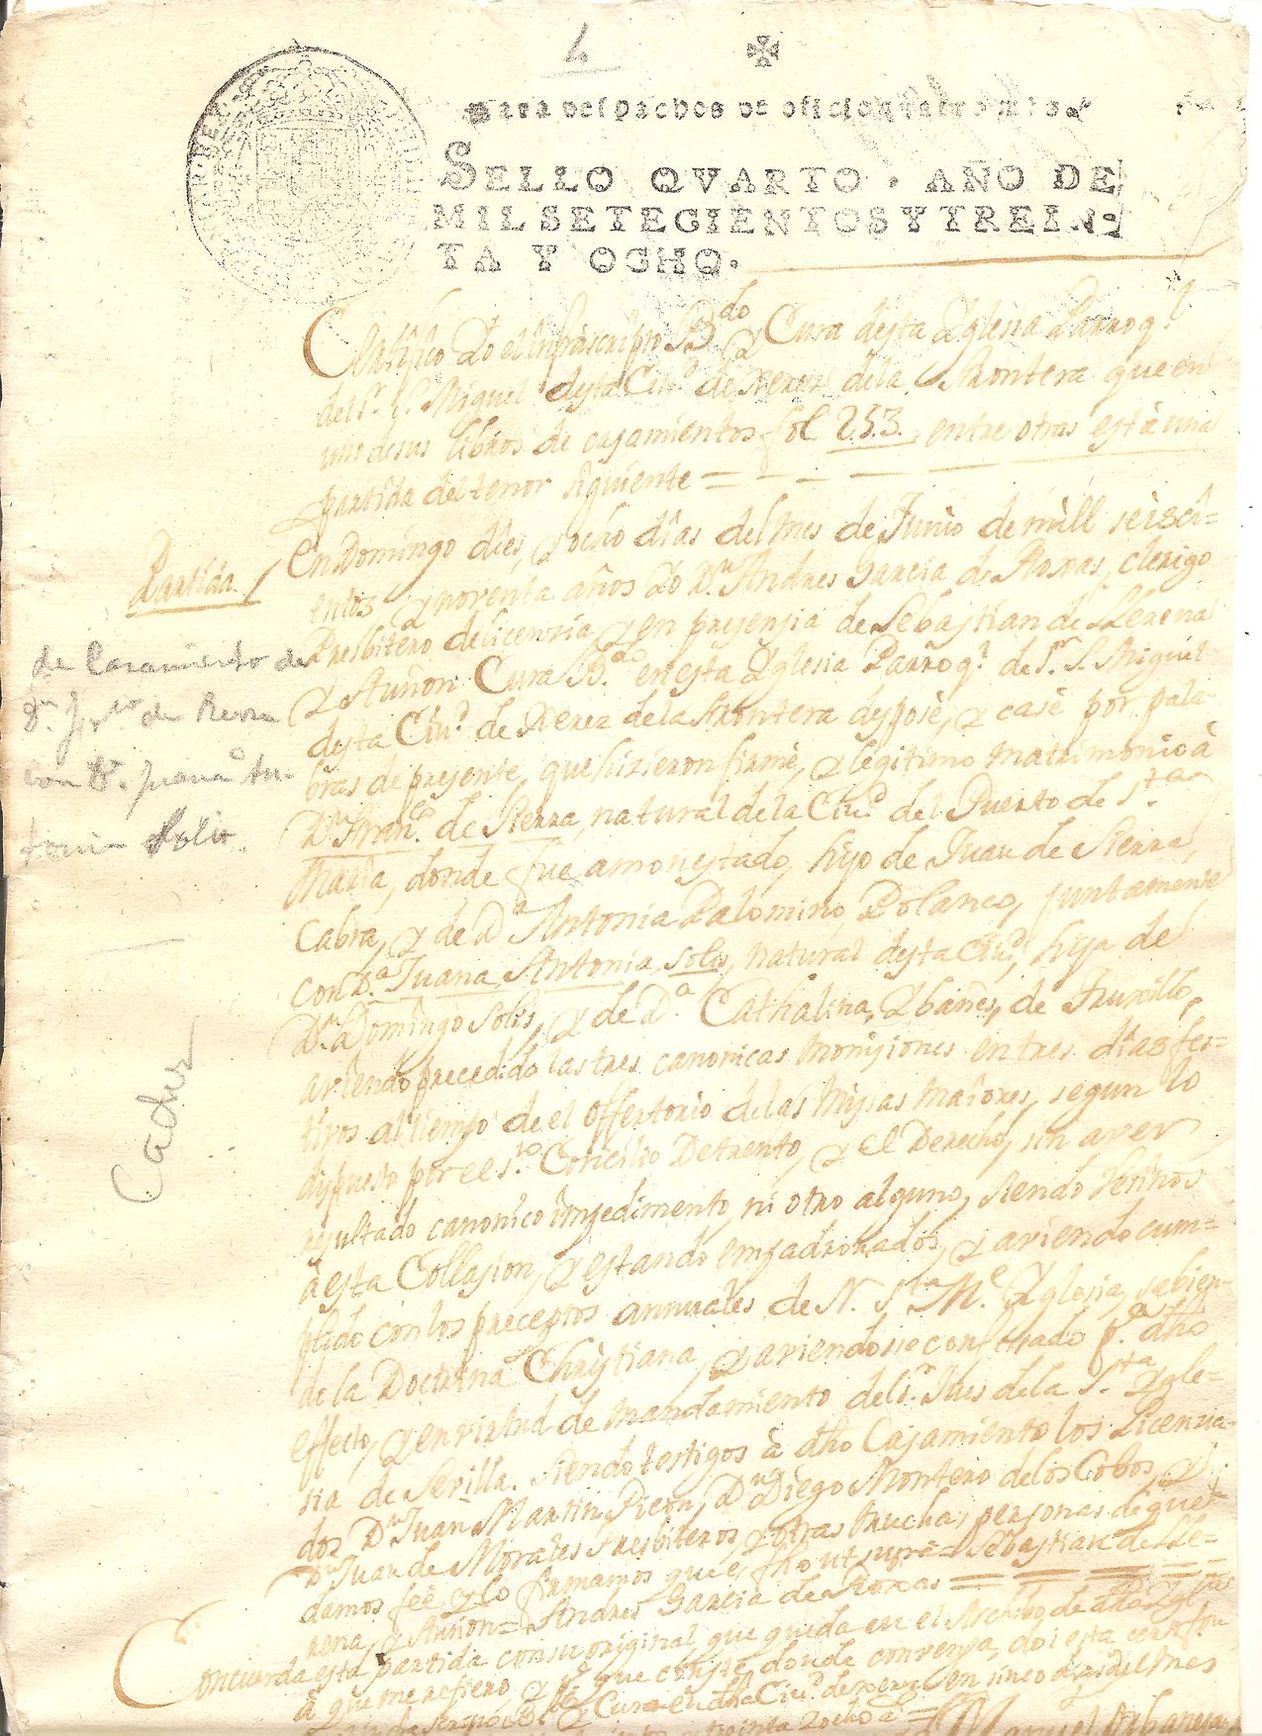 4
para despachos de oficio quatro mrs.
SELLO QVARTO. AÑO DE
MIL SETECIENTOS Y TREIN-
TA Y OCHO.
Certifico Yo el infrascripto B.do y Cura desta Yglesia Parroq.l
del S.r S. Miguel desta Ciu.d de Xerez dela frontera que en
uno de sus libros de casamientos fol 253. entre otras està una
partida del tenor siguiente =
Partida.
En Domingo dies, y ocho dias del mes de Junio de mill seiscî=
entos y noventa años Yo D.n Andres Garcia de Roxas, clerigo
Presbitero de licenzia, y en presenzia de Sebastian de Llerena
y Auñon Cura B.do en esta Yglesia Parroq.l de S.r S. Miguel
desta Ciu.d de Xerez dela frontera desposè, y casè por pala-
bras de presente, que hizieron firme, y legitimo matrimonio à
D.n Fran.co de Sierra, natural de la Ciu.d del Puerto de S.ta
Maria, donde fue amonestado, hijo de Juan de Sierra,
Cabra, y de D.a Antonia Palomino, Polanco, juntamente
con D.a Juana Antonia Solis, natural desta Ciu.d, hija de
D.n Domingo Solis, y de D.a Cathalina, Ybañes, de Truxillo,
aviendo precedido las tres canonicas moniziones en tres dias fes=
tivos al tiempo de el offertorio de las Missas maiores, segun lo
dispuesto por el S.to Concilio De trento, y el Derecho, sin aver
resultado canonico impedimento, ni otro alguno, siendo Vezinos
à esta Collasion, y estando empadronados, y aviendo cum=
plido con los preceptos annuales de N. S.ta M.e Yglesia, sabien-
de la Doctrina Christiana, y aviendose confessado p.a dho
effecto, y en virtud de mandamiento del S.r Jues de la S.ta Ygle=
sia de Sevilla. Siendo testigos à dho Casamiento los Licenzia-
dos D.n Juan Martin Picon, D.n Diego Montero de los Cobos, y
D.n Juan de Morales Presbiteros, y otras muchas personas de que
damos feè y lo firmamos que es fho ut suprà = Sebastian de Lle=
rena, y Auñon = Andres Garcia de Roxas =
Concuerda esta partida con su original que queda en el Archibo de dha Ygl.
à que me refiero, y p.a que conste donde convenga, doi esta
Cura en dha Ciu.d de Xerez en sinco dias del mes
treinta y ocho a.s =
de Casamiento de
D.n Fr.co de Sierra
con D.a Juana An-
tonia Solis
Cadiz